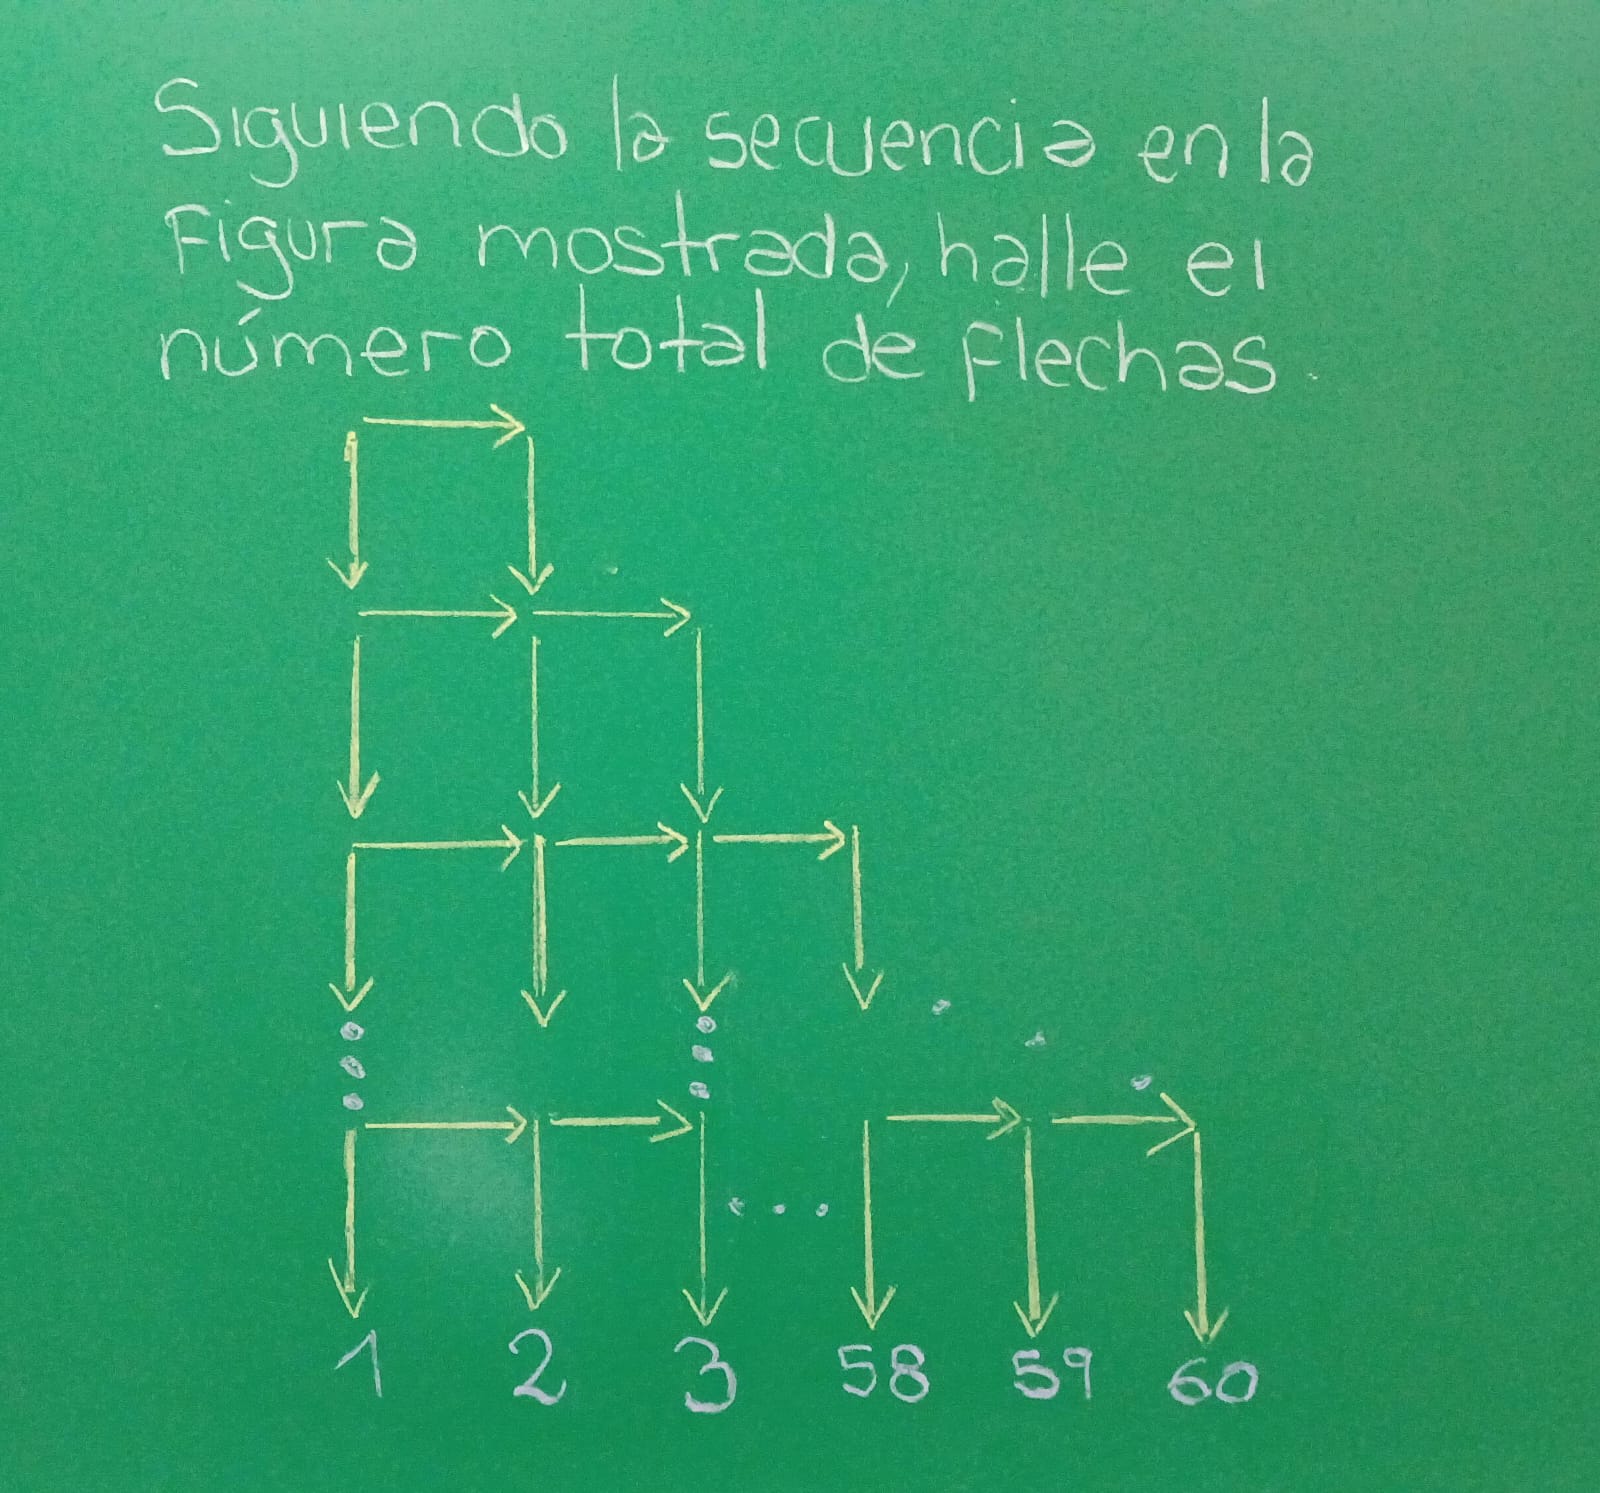 Siguiendo la secuencia en la
Figura mostrada, halle el
número total de Flechas.
1 2 3 58 59 60